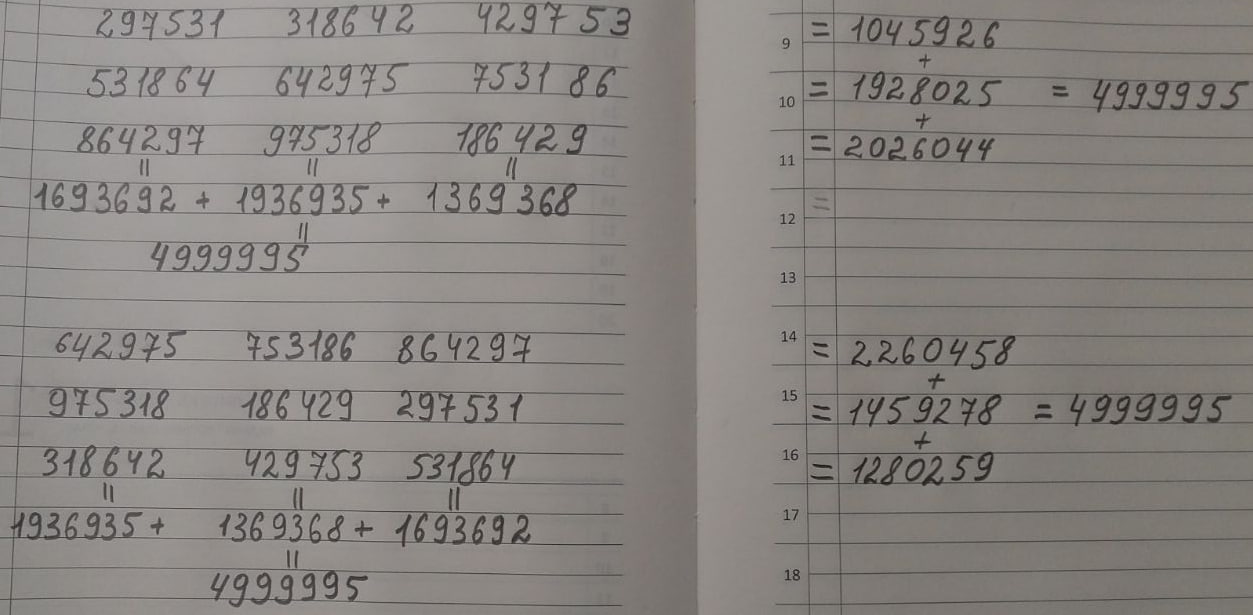 297531 318642 429753
531864 642975 753186
864297 975318 186429
= = =
1693692 + 1936935 + 1369368
=
4999995
642975 753186 864297
975318 186429 297531
318642 429753 531864
= = =
1936935 + 1369368 + 1693692
=
4999995
9 = 1045926
+
10 = 1928025 = 4999995
+
11 = 2026044
12 =
13
14 = 2260458
+
15 = 1459278 = 4999995
+
16 = 1280259
17
18